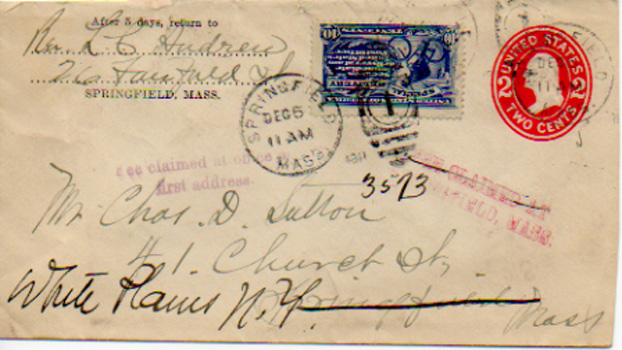 After 5 days, return to
Rev. L C Andrew
SPRINGFIELD, MASS.
10 10
UNITED STATES
2 2
TWO CENTS
SPRINGFIELD
DEC 5
11 AM
MASS.
1
fee claimed at office of
first address.
3573
FEE CLAIMED AT
SPRINGFIELD, MASS.
Mr. Chas. D. Sutton
41 Church St,
Springfield
White Plains N.Y.
Mass